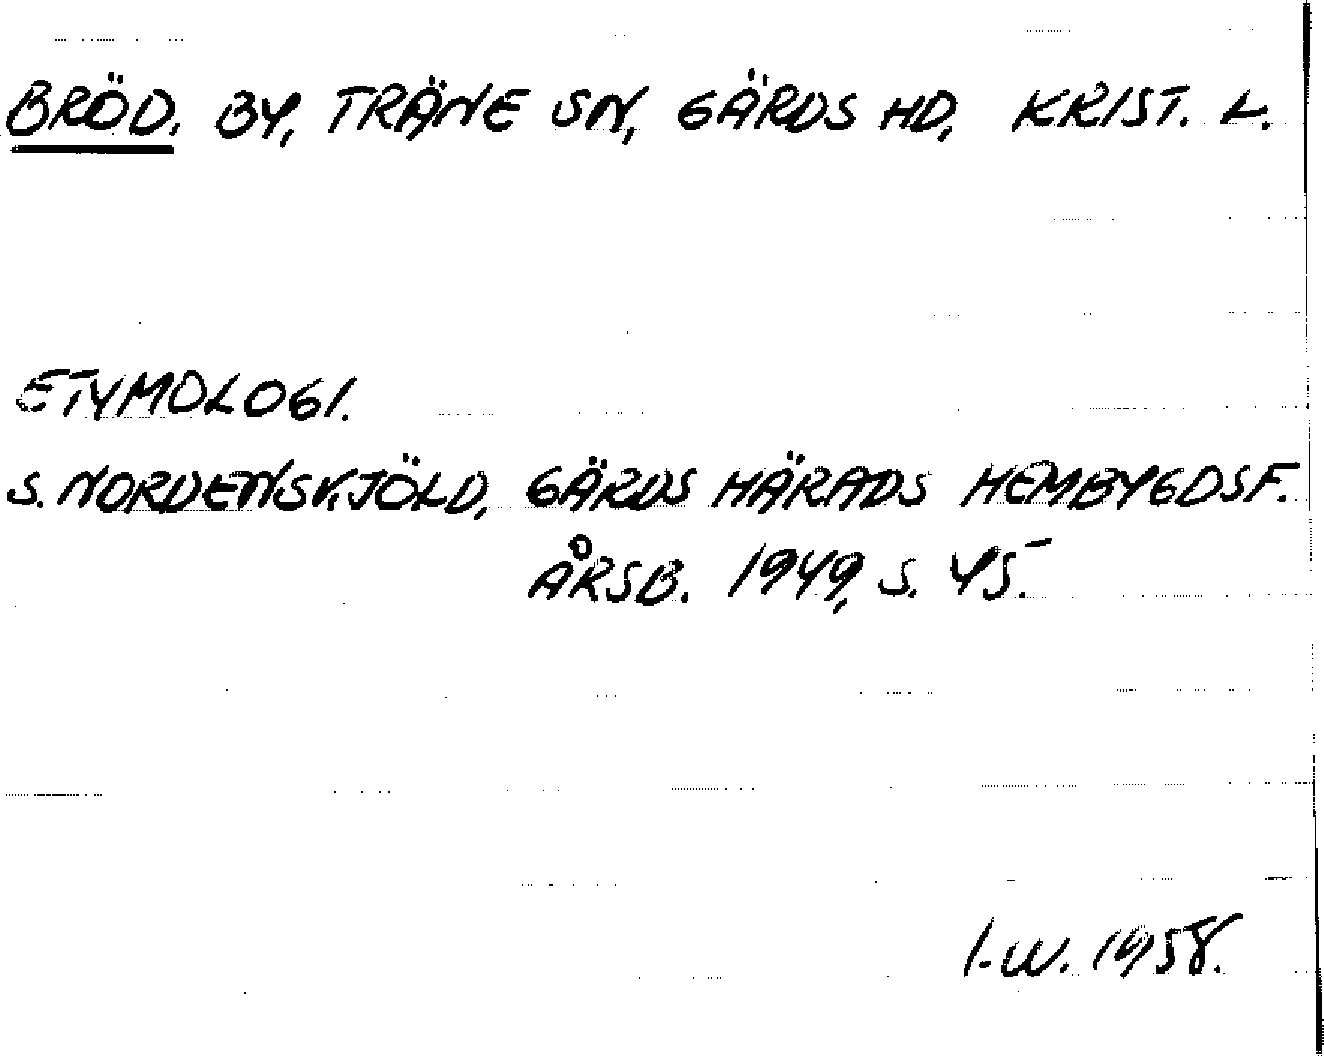 BRÖD. BY, TRÄNE SN, GÄRDS HD, KRIST. L.
ETYMOLOGI.
S. NORDENSKJÖLD, GÄRDS HÄRADS HEMBYGDSF.
ÅRSB. 1949, S. 45.
I.W. 1958.